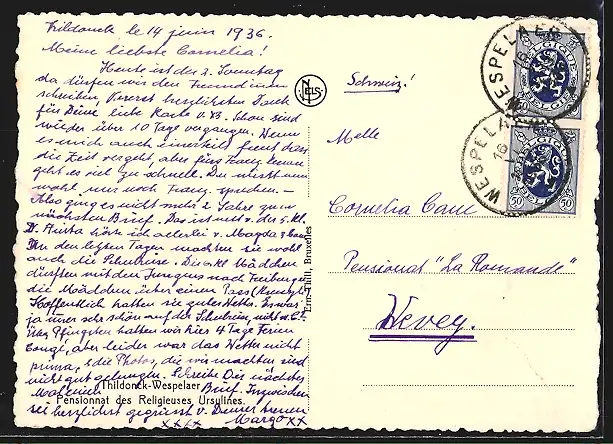 Thildonck, le 14 juin 1936.
Meine liebste Cornelia!
Heute ist der 2. Sonntag
da dürfen wir den Freundinnen
schreiben. Vorerst herzlichsten Dank
für Deine liebe Karte v. 3. Schon sind
wieder über 10 Tage vergangen. Wenn
es mich auch einerseits freut dass
die Zeit vergeht, aber fürs Franz. lernen
geht es viel zu schnell. Du musst nun
wohl nur noch Franz. sprechen. –
Also ging es nicht mehr 2 Jahre zum
nächsten Brief. Das ist nett v. der 5. Kl.
V. Anita höre ich allerlei v. Magda &
In den letzten Tagen machten sie wohl
auch die Schulreise. Die 6. Kl. Mädchen
dürften mit den Jungens nach Freiburg
die Mädchen über einen Pass
Hoffentlich hatten sie gutes Wetter. Es war
ja immer sehr schön auf der Schulreise, nicht w. C.?
Über Pfingsten hatten wir hier 4 Tage Ferien
Congé, aber leider war das Wetter nicht
prima, & die Photos, die wir machten sind
nicht gut gelungen. Schreibe Dir nächstes
Mal einen Brief. Inzwischen
sei herzlichst gegrüsst v. Deiner treuen
xxxx Margo xx
Thildonck-Wespelaer
Pensionnat des Religieuses Ursulines.
Ern. Thill, Bruxelles
NELS
Schweiz!
Melle
Cornelia
Pensionat "La Romande"
Vevey.
WESPELAER
16
BELGIQUE
BELGIE
50
WESPELAER
16
50
50